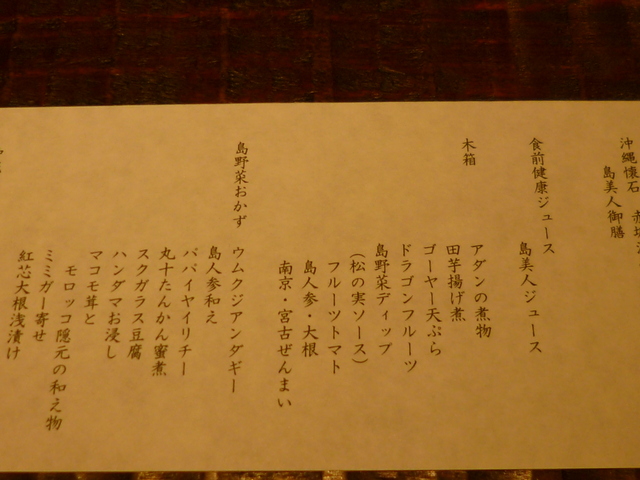 沖縄懐石
島美人御膳
食前健康ジュース 島美人ジュース
木箱
アダンの煮物
田芋揚げ煮
ゴーヤー天ぷら
ドラゴンフルーツ
島野菜ディップ
(松の実ソース)
フルーツトマト
島人参・大根
南京・宮古ぜんまい
島野菜おかず ウムクジアンダギー
島人参和え
パパイヤイリチー
丸十たんかん蜜煮
スクガラス豆腐
ハンダマお浸し
マコモ茸と
モロッコ隠元の和え物
ミミガー寄せ
紅芯大根浅漬け